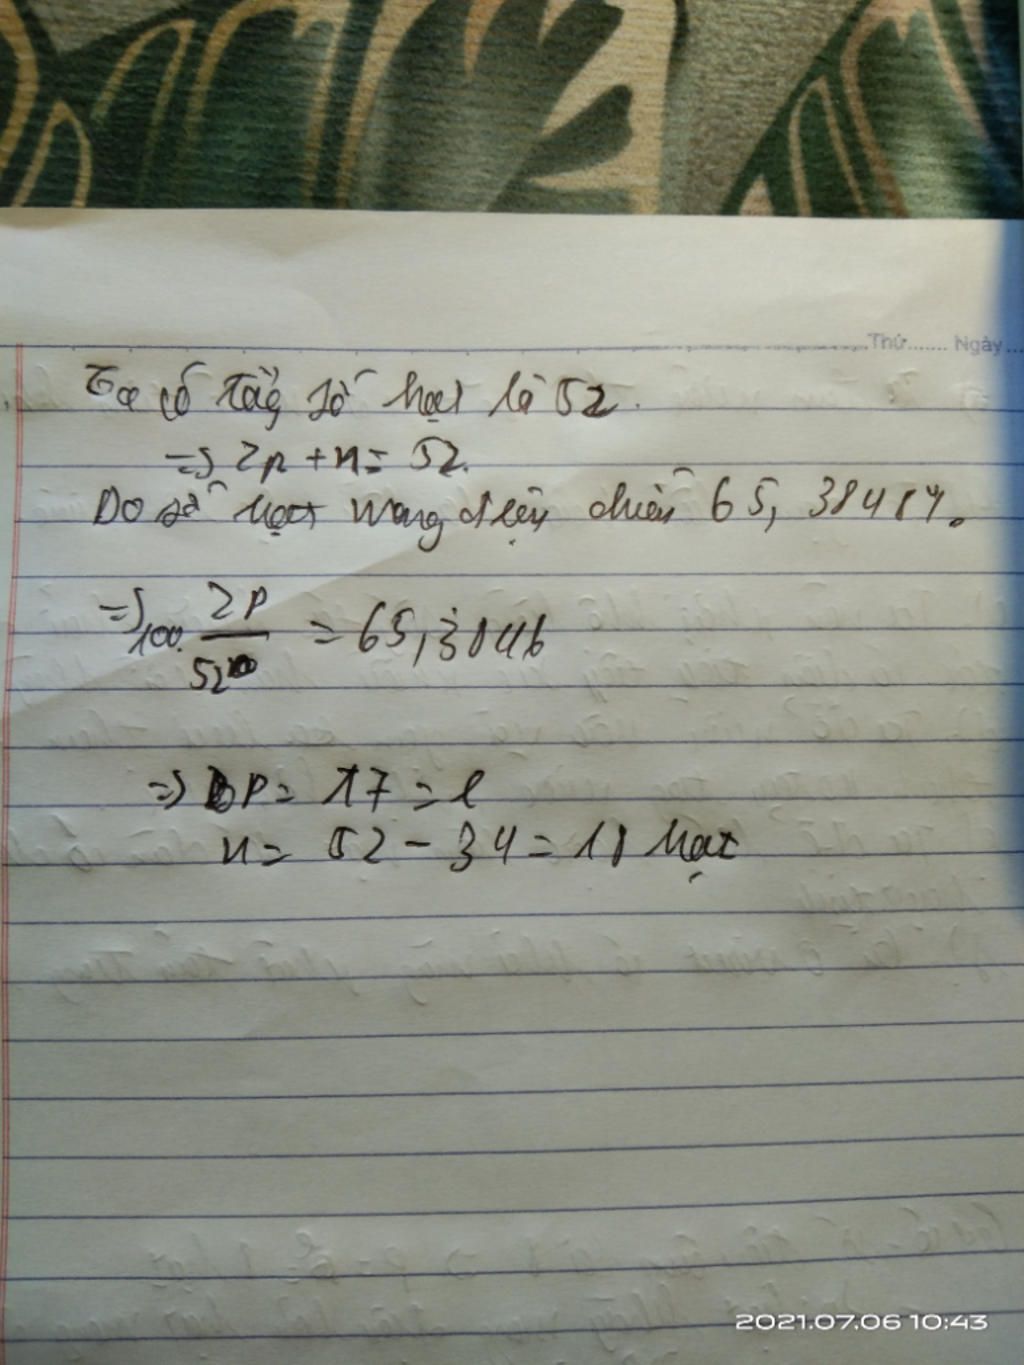 Thứ....... Ngày...
Ta có tổng số hạt là 52.
=> 2p + n = 52.
Do số hạt mang điện chiếm 65, 38481%
=> 100. 2P / 52 = 65,3846
=> P = 17 = e
n = 52 - 34 = 18 hạt
2021.07.06 10:43